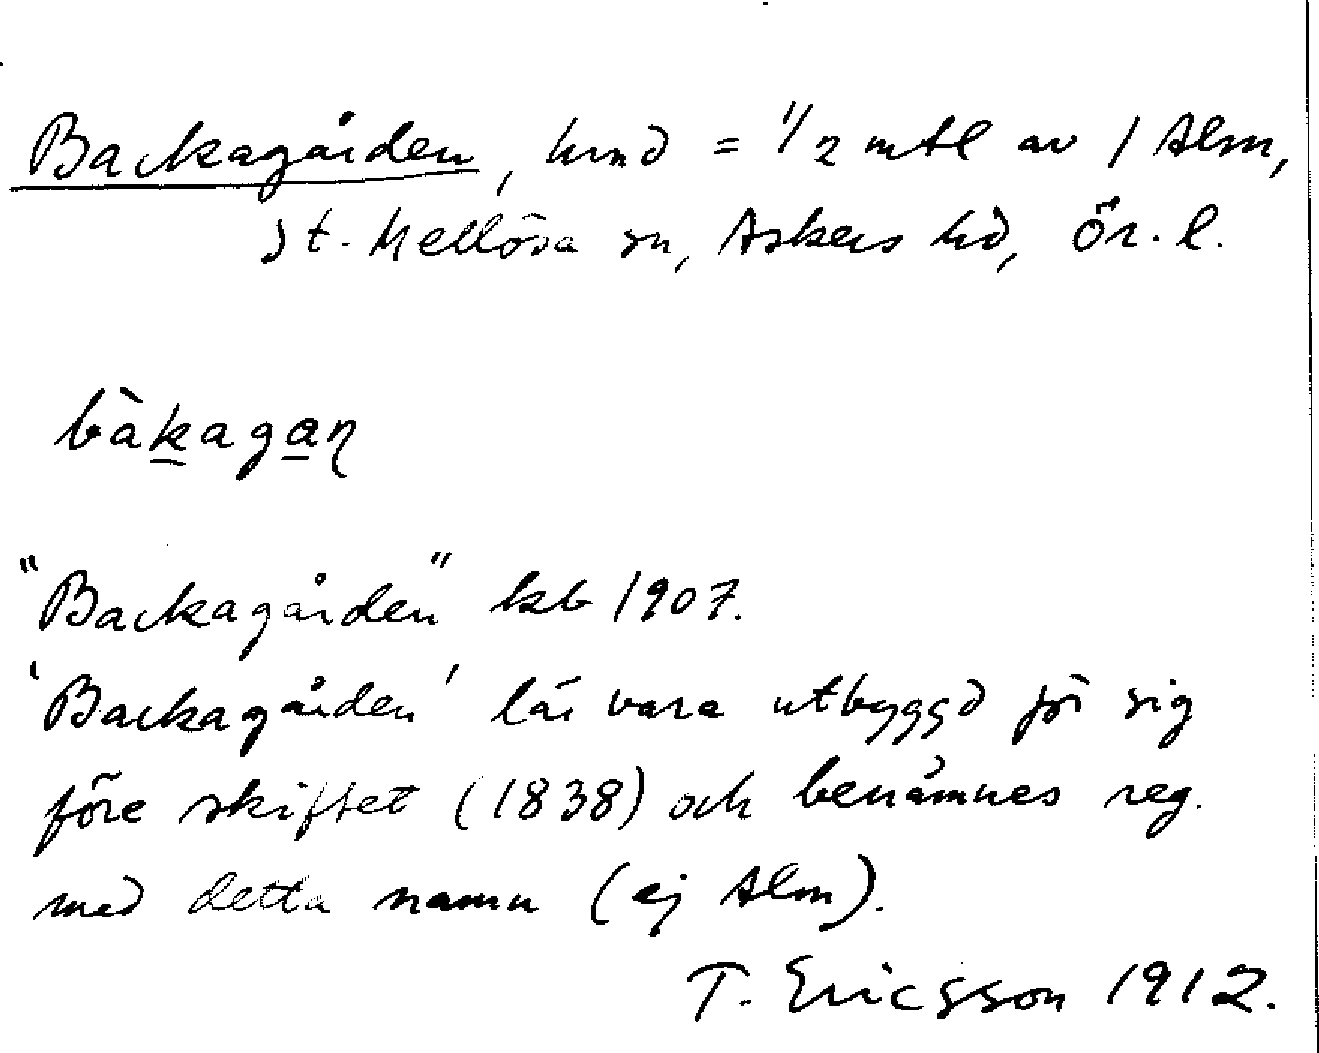 Backagården, hmd = 1/2 mtl av 1 Alm,
St. Mellösa sn, Askers hd, Ör. l.
bàkagaɳ
"Backagården" kb 1907.
'Backagården' lär vara utbyggd för sig
före skiftet (1838) och benämnes reg.
med detta namn (ej Alm).
T. Ericsson 1912.